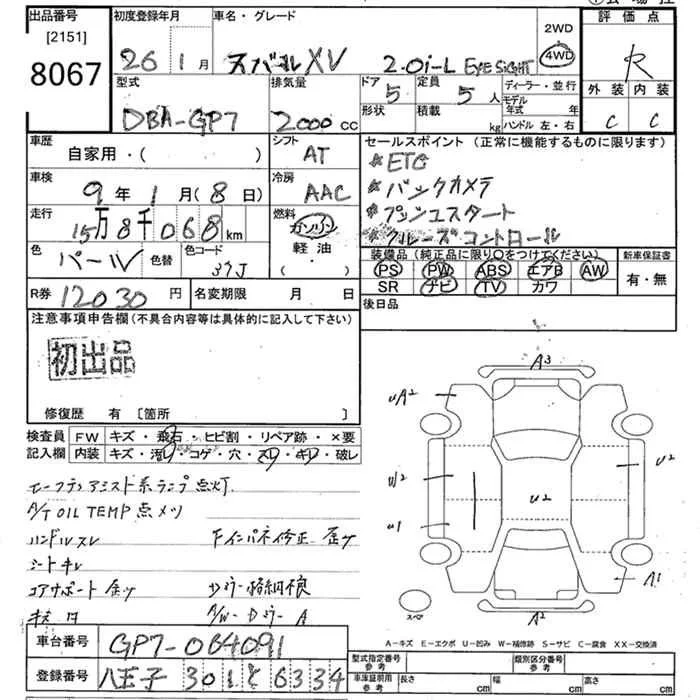 出品番号
[2151]
8067
初度登録年月
26 1月
車名・グレード
スバル XV 2.0i-L EYE SIGHT
2WD
4WD
評価点
R
外装 内装
C C
型式
DBA-GP7
排気量
2000 cc
ドア 5
形状
定員 5 人
積載 kg
ディーラー・並行
モデル年式 年
ハンドル 左・右
車歴
自家用・( )
シフト
AT
車検
9年 1月(8日)
冷房
AAC
走行
15万8千068 km
燃料
ガソリン
軽油・
色
パール
色替
色コード
37J
R券 12030 円
名変期限 月 日
セールスポイント (正常に機能するものに限ります)
*ETC
*バックカメラ
*プッシュスタート
*クルーズコントロール
装備品(純正品に限り○をつけてください)
PS PW ABS エアB AW
SR ナビ TV カワ
新車保証書
有・無
後日品
注意事項申告欄(不具合内容等は具体的に記入して下さい)
初出品
修復歴 有 [箇所 ]
検査員記入欄
FW キズ・飛石・ヒビ割・リペア跡・×要
内装 キズ・汚レ・コゲ・穴・スレ・キレ・破レ
A/T OIL TEMP 点メツ
ハンドルスレ
シートキレ
コアサポート
A/W・Dミラー A
A3
uA2
u2
u2
u2
u1
A1
A2
スペア
A-キズ E-エクボ U-凹み W-補修跡 S-サビ C-腐食 XX-交換済
車台番号 GP7-064091
登録番号 八王子 301 と 6334
型式指定番号 参考
類別区分番号 参考
車庫証明用 参考
長さ cm 幅 cm 高さ cm